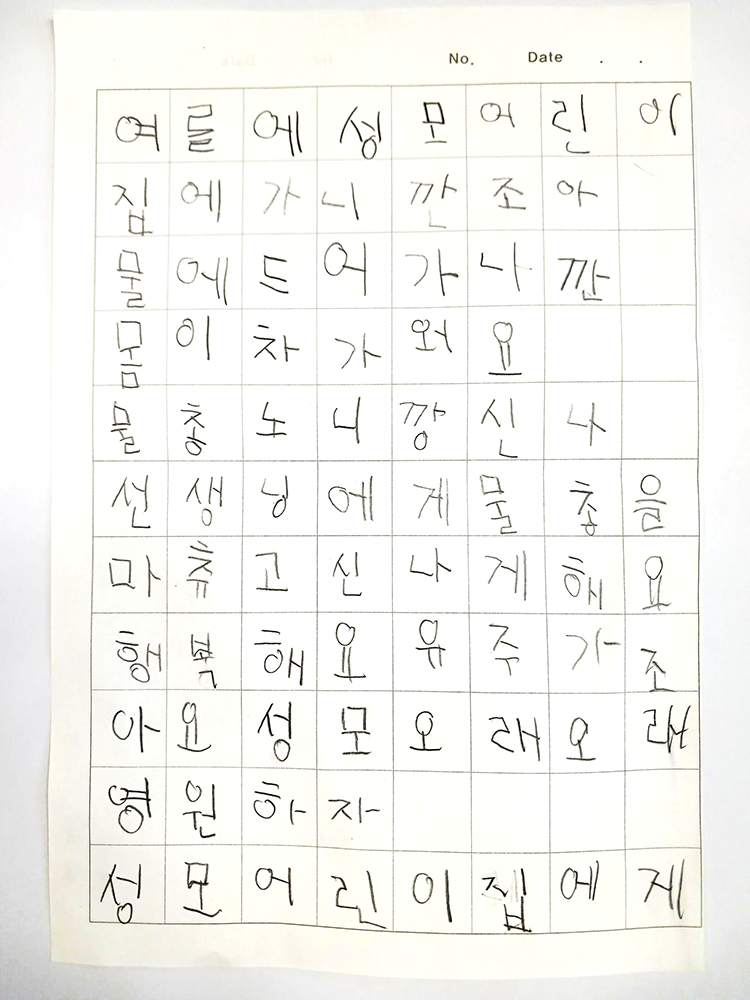 No. Date . .
여름에성모어린이
집에가니깐조아
물에드어가나깐
몸이차가워요
물총노니깡신나
선생닝에게물총을
마츄고신나게해요
행복해요유주가조
아요성모오래오래
영원하자
성모어린이집에제